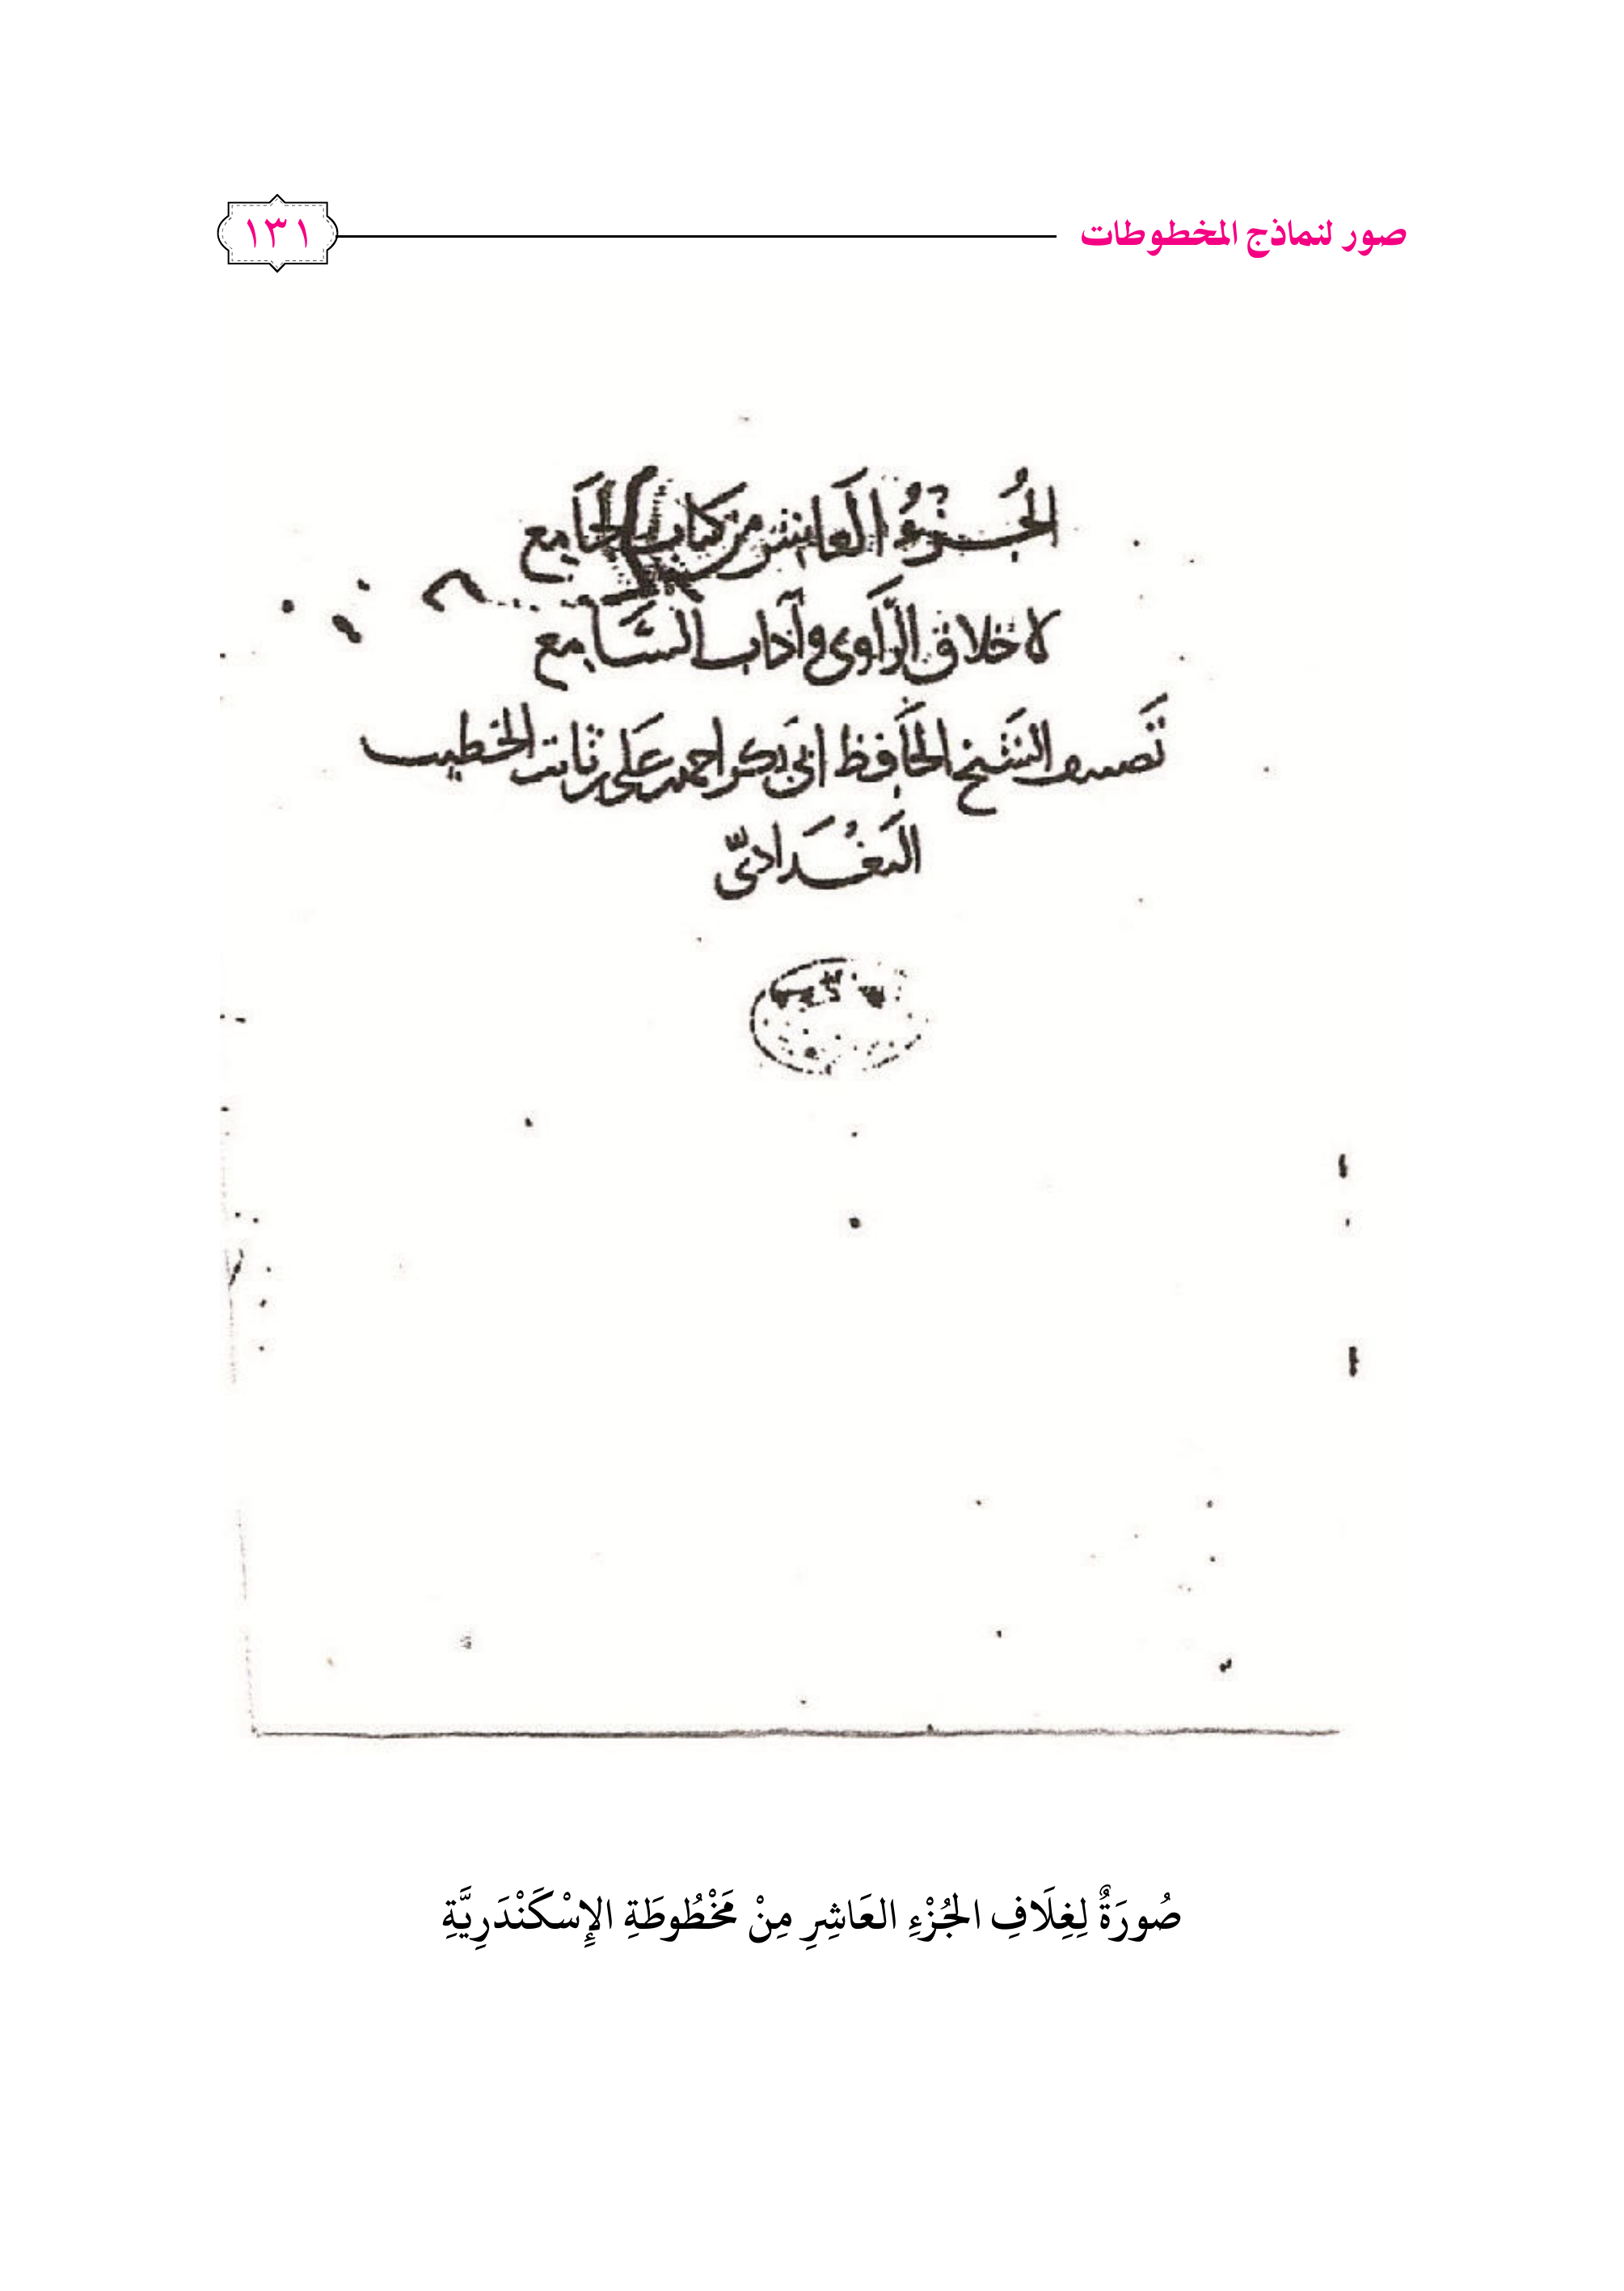 صور لنماذج المخطوطات
١٣١
الجُزءُ العَاشر من كتاب الجَامِع
لاخلاق الرَّاوى وآداب السَّامع
تَصنيف الشَيخ الحَافِظ ابى بَكر احمد بن عَلى بن ثابت الخطيب
البَغْدَادىّ
صُورَةٌ لِغِلَافِ الجُزْءِ العَاشِرِ مِنْ مَخْطُوطَةِ الإِسْكَنْدَرِيَّةِ